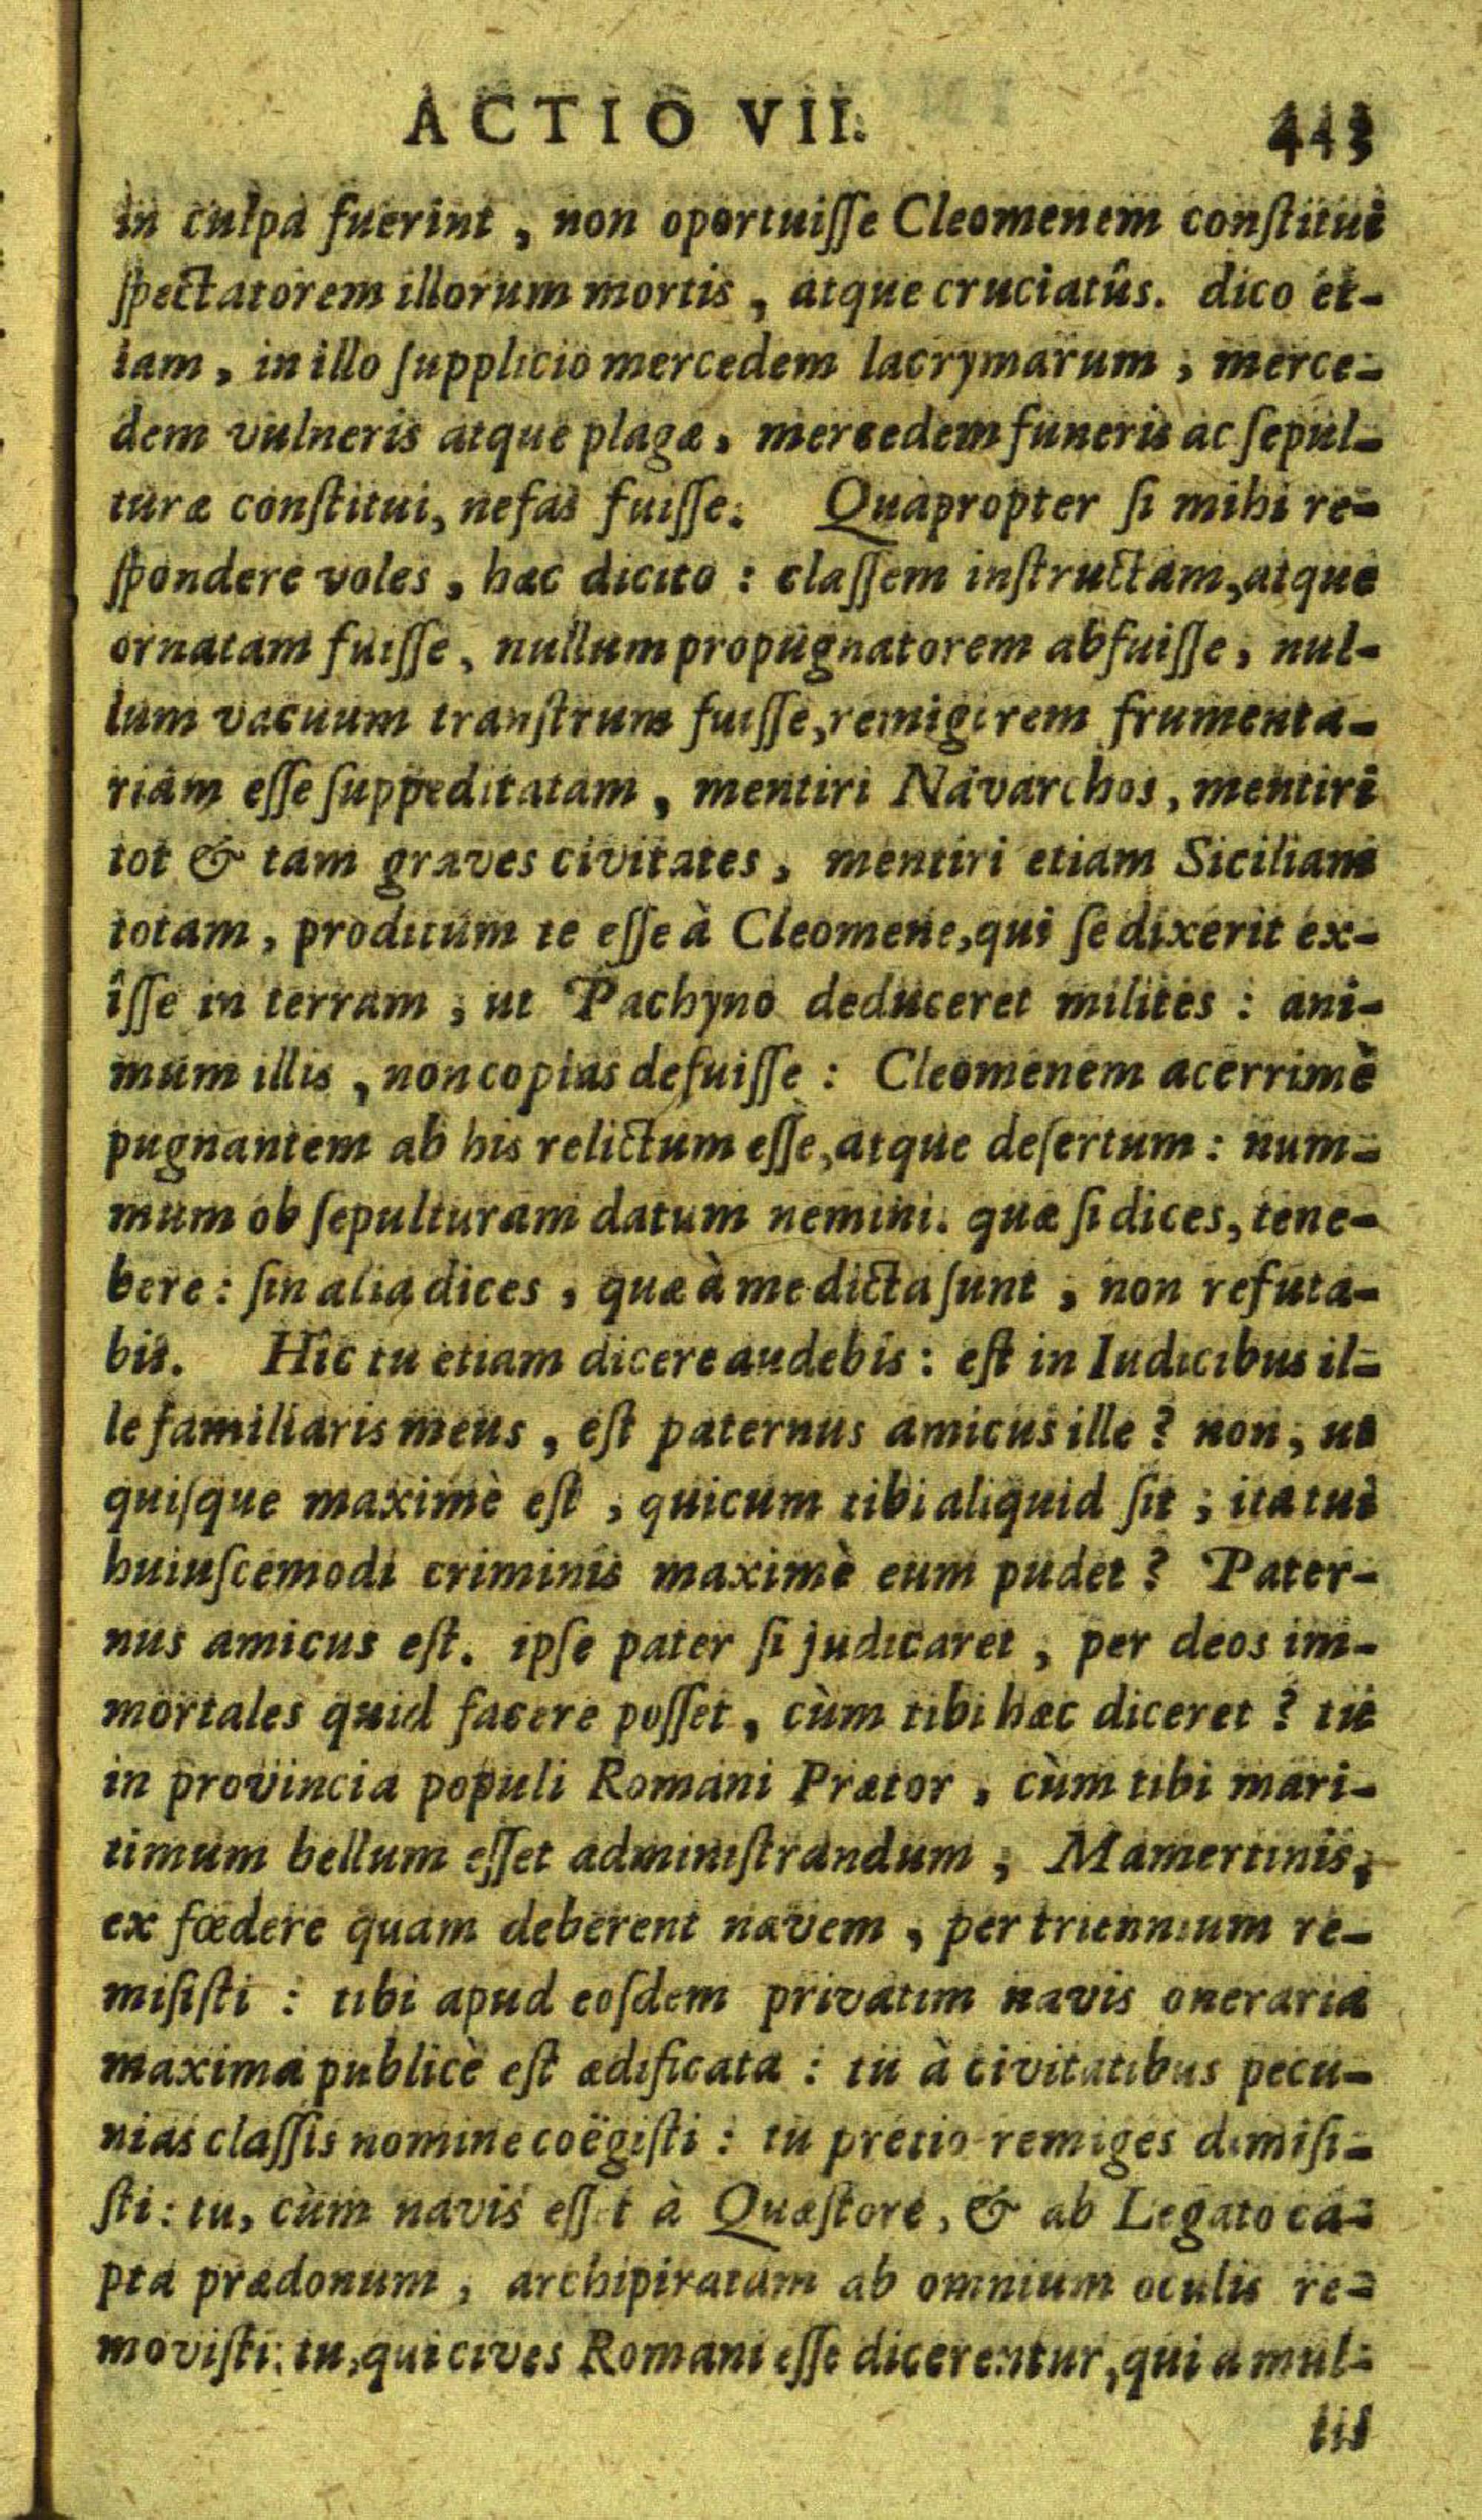 ACTIO VII. 443
in culpa fuerint, non oportuiſſe Cleomenem conſtitui
ſpectatorem illorum mortis, atque cruciatûs. dico et-
iam, in illo ſupplicio mercedem lacrymarum, merce-
dem vulneris atque plagæ, mercedem funeris ac ſepul-
turæ conſtitui, nefas fuiſſe. Quapropter ſi mihi re-
ſpondere voles, hæc dicito: claſſem inſtructam, atque
ornatam fuiſſe, nullum propugnatorem abfuiſſe, nul-
lum vacuum tranſtrum fuiſſe, remigi rem frumenta-
riam eſſe ſuppeditatam, mentiri Navarchos, mentiri
tot & tam graves civitates, mentiri etiam Siciliam
totam, proditum te eſſe à Cleomene, qui ſe dixerit ex-
îſſe in terram, ut Pachyno deduceret milites: ani-
mum illis, non copias defuiſſe: Cleomenem acerrimè
pugnantem ab his relictum eſſe, atque deſertum: num-
mum ob ſepulturam datum nemini. quæ ſi dices, tene-
bere: ſin alia dices, quæ à me dicta ſunt, non refuta-
bis. Hîc tu etiam dicere audebis: eſt in Iudicibus il-
le familiaris meus, eſt paternus amicus ille? non, ut
quiſque maximè eſt, quicum tibi aliquid ſit; ita tui
huiuſcemodi criminis maximè eum pudet? Pater-
nus amicus eſt. ipſe pater ſi judicaret, per deos im-
mortales quid facere poſſet, cùm tibi hæc diceret? tu
in provincia populi Romani Prætor, cùm tibi mari-
timum bellum eſſet adminiſtrandum, Mamertinis,
ex fœdere quam deberent navem, per triennium re-
miſiſti: tibi apud eoſdem privatim navis oneraria
maxima publicè eſt ædificata: tu à civitatibus pecu-
nias claſſis nomine coëgiſti: tu pretio remiges dimiſi-
ſti: tu, cùm navis eſſet à Quæſtore, & ab Legato ca-
pta prædonum, archipiratam ab omnium oculis re-
moviſti: tu, qui cives Romani eſſe dicerentur, qui a mul-
tis